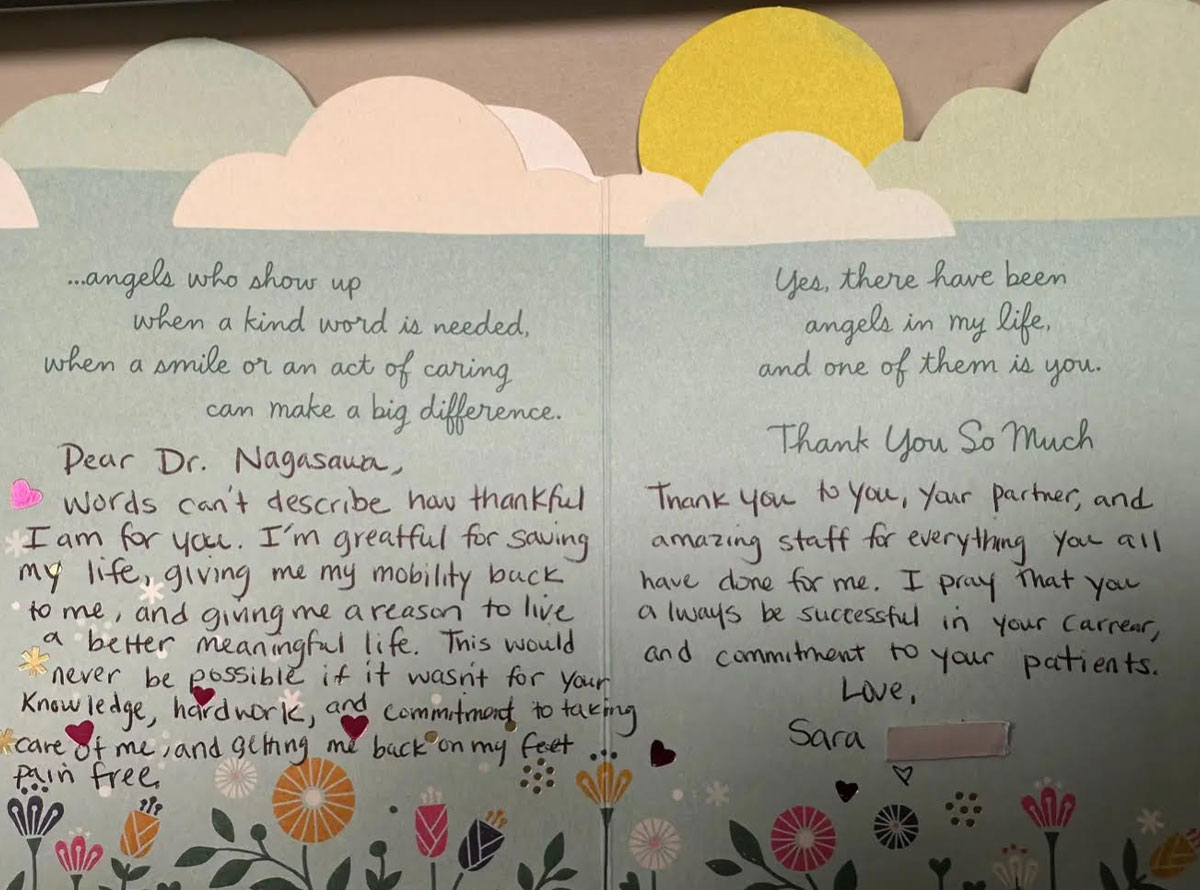 ...angels who show up
when a kind word is needed,
when a smile or an act of caring
can make a big difference.
Dear Dr. Nagasawa,
Words can't describe how thankful
I am for you. I'm greatful for saving
my life, giving me my mobility back
to me, and giving me a reason to live
a better meaningful life. This would
never be possible if it wasn't for your
Knowledge, hardwork, and commitment to taking
care of me, and getting me back on my feet
pain free.
Yes, there have been
angels in my life,
and one of them is you.
Thank You So Much
Thank you to you, your partner, and
amazing staff for everything you all
have done for me. I pray that you
always be successful in your carrear,
and commitment to your patients.
Love,
Sara